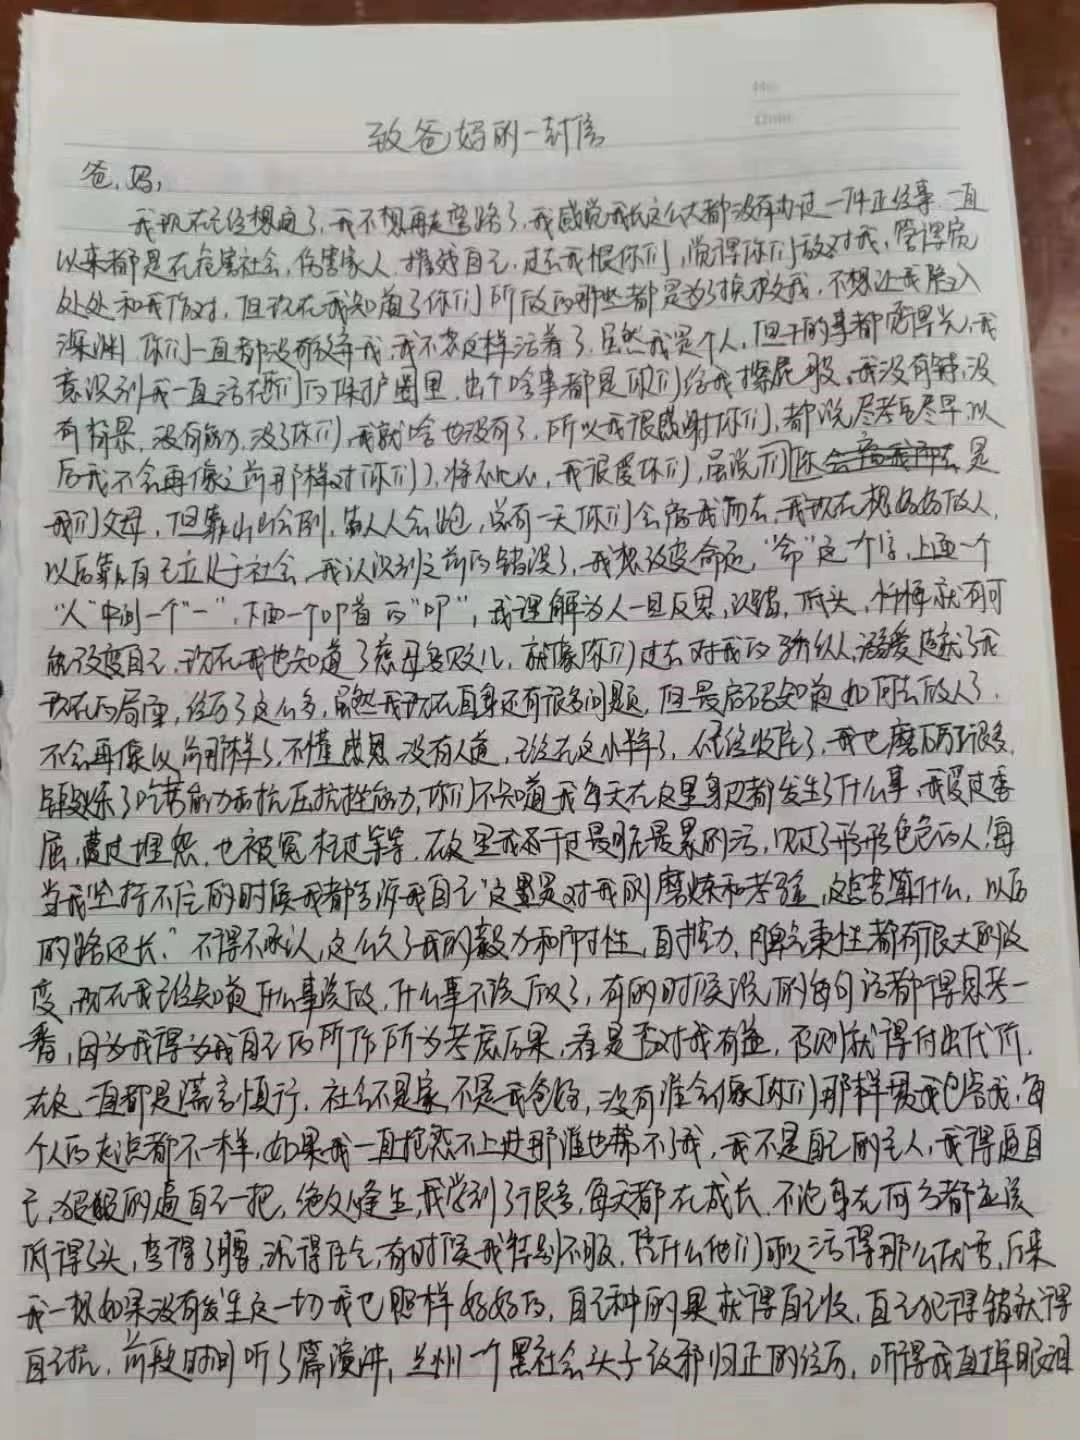 No:
Date:
致爸妈的一封信
爸、妈,
我现在已经想通了,我不想再走弯路了,我感觉我长这么大都没有办过一件正经事,一直
以来都是在危害社会,伤害家人,摧残自己,过去我恨你们,觉得你们敌对我,管得宽
处处和我作对,但现在我知道了你们所做的那些都是为了挽救我,不想让我陷入
深渊,你们一直都没有放弃我,我不想这样活着了,虽然我是个人,但干的事都觉得丢人,我
意识到我一直活在你们的保护圈里,出个啥事都是你们给我擦屁股,我没有钱,没
有背景,没有能力,没了你们,我就啥也没有了,所以我很感谢你们,都说尽孝应尽早,以
后我不会再像之前那样对你们了,将心比心,我很爱你们,虽说你们是
我们父母,但靠山山会倒,靠人人会跑,总有一天你们会离我而去,我现在想好好做人,
以后靠自己立足于社会,我认识到之前的错误了,我想改变命运,“命”这个字,上面一个
“人”中间一个“一”,下面一个叩首的“叩”,我理解为人一旦反思,认错,低头,忏悔就有可
能改变自己,现在我也知道了慈母多败儿,就像你们过去对我的骄纵,溺爱造就了我
现在的局面,经历了这么多,虽然我现在自身还有很多问题,但最起码知道如何去做人了,
不会再像以前那样了,不懂感恩,没有人道,已经在这小半年了,心已经收住了,我也磨砺了很多,
锻炼了吃苦能力和抗压抗挫能力,你们不知道我每天在这里身边都发生了什么事,我受过委
屈,遭过埋怨,也被冤枉过等等,在这里我干过最脏最累的活,见过了形形色色的人,每
当我坚持不住的时候我都告诉我自己“这里是对我的磨炼和考验,这点苦算什么,以后
的路还长。”不得不承认,这么久了我的毅力和耐性,自控力,脾气秉性都有很大的改
变,现在我已经知道什么事该做,什么事不该做了,有的时候说的每句话都得思考一
番,因为我得为我自己的所作所为考虑后果,看是否对我有益,否则就得付出代价,
在这一直都是谨言慎行,社会不是家,不是我爸妈,没有谁会像你们那样惯我包容我,每
个人的起点都不一样,如果我一直抱怨不上进那谁也帮不了我,我不是自己的主人,我得逼自
己,狠狠的逼自己一把,绝处逢生,我学到了很多,每天都在成长,不论身在何方都应该
低得了头,弯得了腰,沉得住气,有时候我特别不服,凭什么他们可以活得那么优秀,后来
我一想如果没有发生这一切我也照样好好的,自己种的果就得自己收,自己犯得错就得
自己扛,前段时间听了篇演讲,兰州一个黑社会头子改邪归正的经历,听得我直掉眼泪